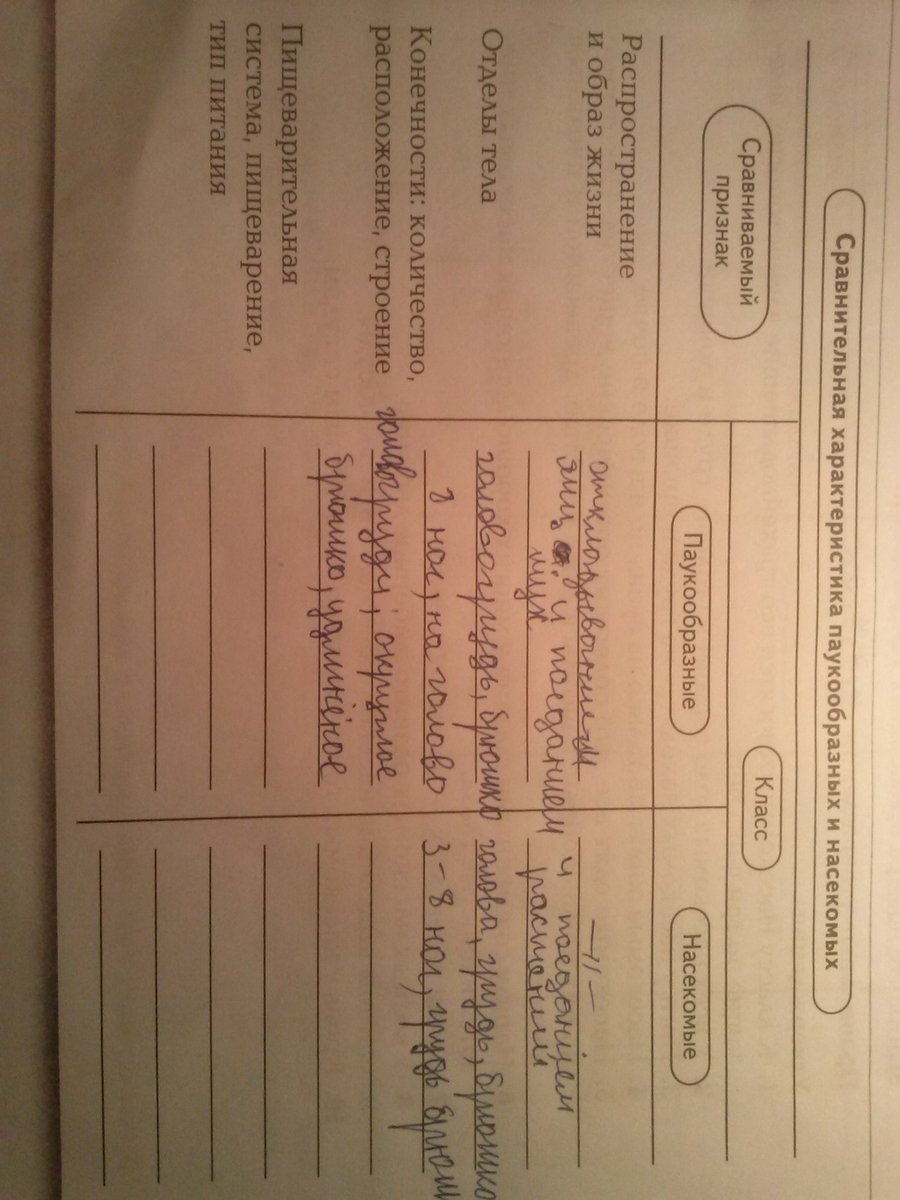 Сравнительная характеристика паукообразных и насекомых
Сравниваемый
признак
Класс
Паукообразные
Насекомые
Распространение
и образ жизни
откладыванием
яиц и поеданием
мух
—||—
и поеданием
растений
Отделы тела
головогрудь, брюшко
голова, грудь, брюшко
Конечности: количество,
расположение, строение
8 ног, на голово
головогруди; округлое
брюшко, удлинёное
3-8 ног, грудь брюш
Пищеварительная
система, пищеварение,
тип питания